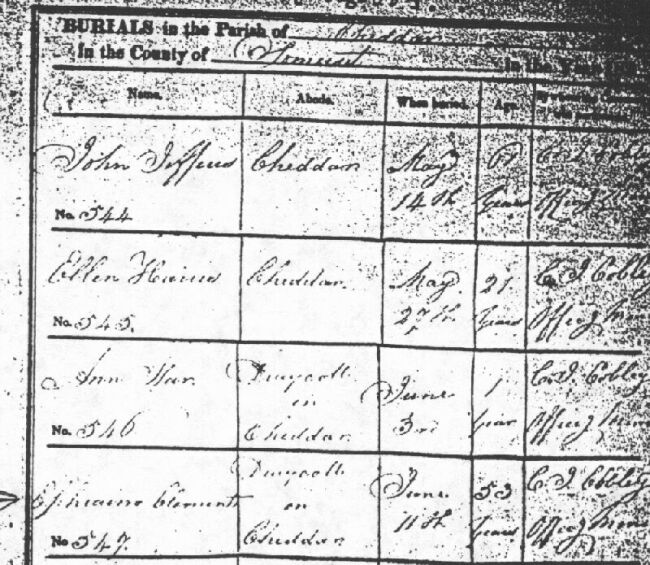 BURIALS in the Parish of Cheddar
in the County of Somerset in the Year
Name. Abode. When buried. Age.
John Cheddar May 61 C. J. Cobley
No. 544 14th Years Offg
Ellen Cheddar May 21 C. J. Cobley
No. 545. 27th Years Offg
Ann Draycott June 1 C. J. Cobley
on
No. 546 Cheddar 3rd Year Offg
Ephraim Clement Draycott June 53 C J Cobley
on
No 547. Cheddar 11th Years Offg